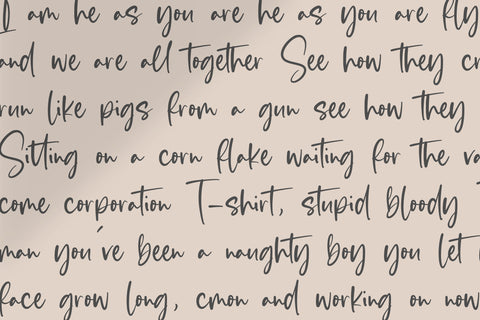 I am he as you are he as you are fly
and we are all together See how they cr
run like pigs from a gun see how they
Sitting on a corn flake waiting for the va
come corporation T-shirt, stupid bloody T
man you've been a naughty boy you let
face grow long, cmon and working on now